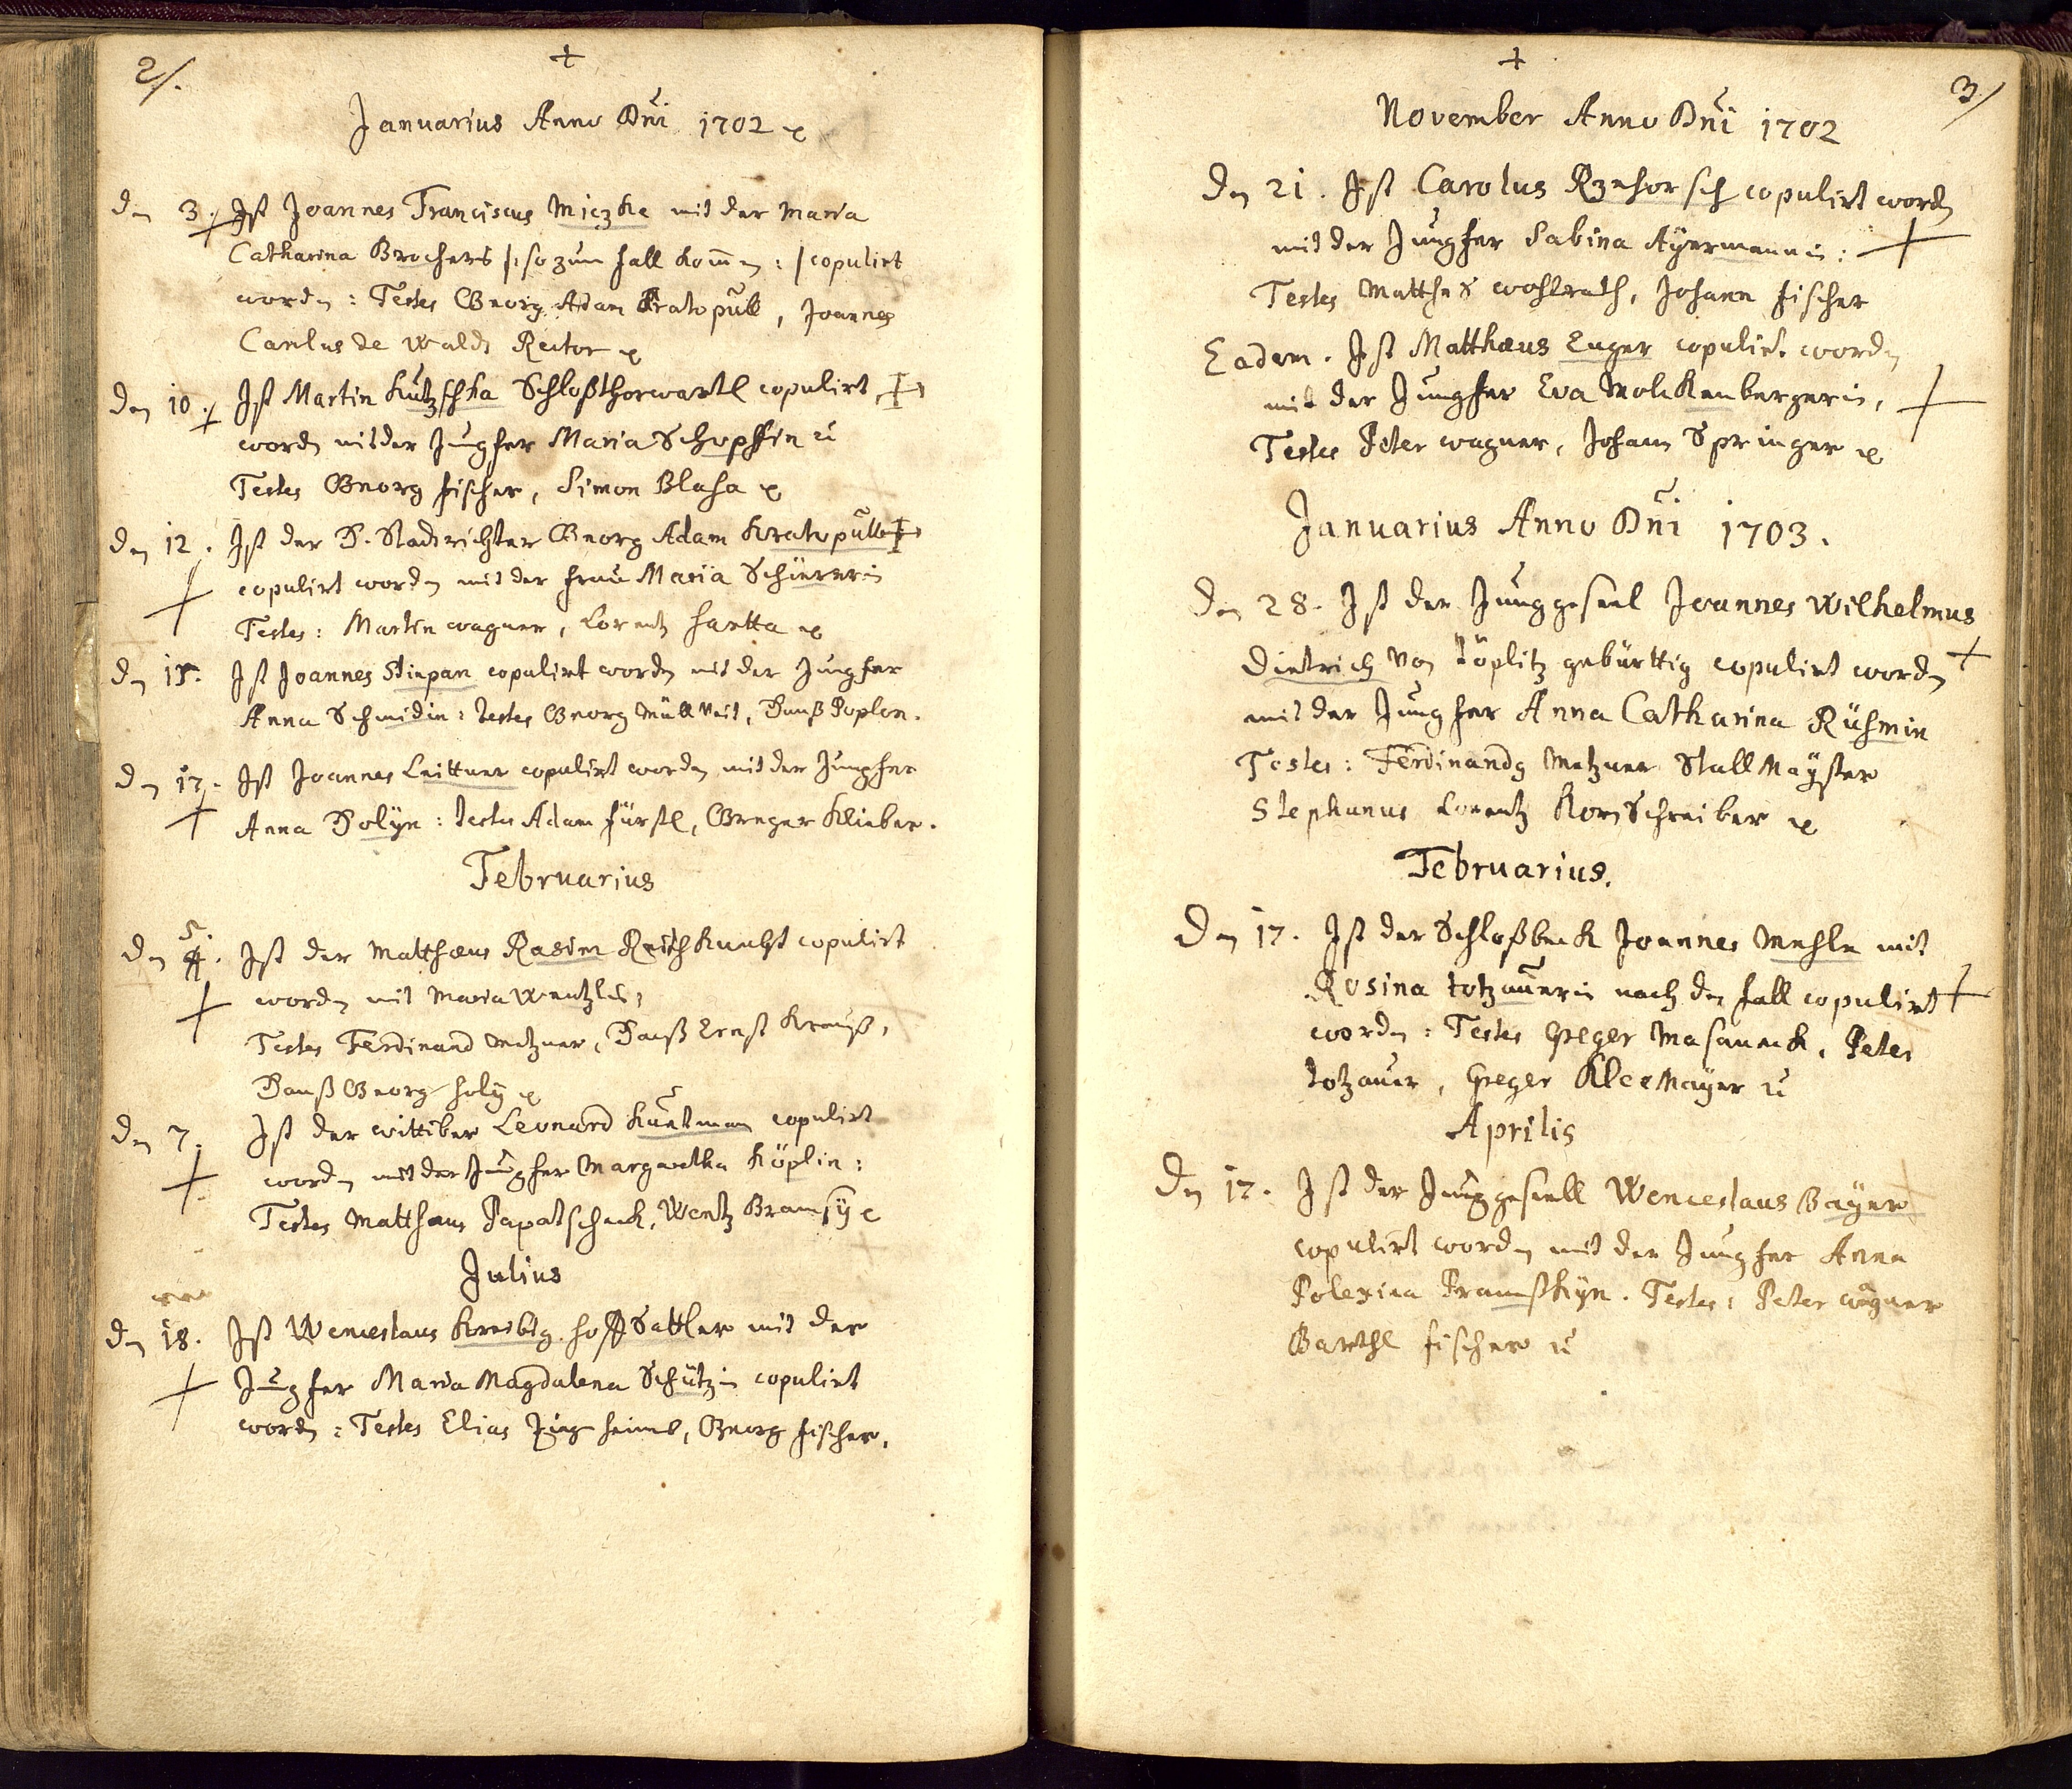 2/.
Januarius Anno Dni 1702
den 3. Ist Joannes Franciscus Miczke mit der Maria
Catharina Brocheris /: so zum fall kommen :/ copulirt
worden : Testes Georg Adam Kratopüll, Joannes
Carolus de Waldt Rector
den 10. Ist Martin Kutzschka Schloßthorwartl copulirt
worden mit der Jungfer Maria Schopffin
Testes Georg fischer, Simon Blaha
den 12. Ist der H. Stadtrichter Georg Adam Kratopüll
copulirt worden mit der frau Maria Schürerin
Testes : Martin wagner, Lorentz hartta
den 15. Ist Joannes Stiepan copulirt worden mit der Jungfer
Anna Schmidin : testes Georg Müll Veit, Hanß Poplon.
den 17. Ist Joannes Leittner copulirt worden mit der Jungfer
Anna Holÿn : testes Adam fürstl, Greger Klieber.
Februarius
den 5. Ist der Matthæus Rasim Reithknecht copulirt
worden mit Maria Wentzlin,
Testes Ferdinand Metzner, Hanß Ernst Krauß,
Hanß Georg holÿ
den 7. Ist der wittiber Leonard Kuntman copulirt
worden mit der Jungfer Margaretha Köplin :
Testes Matthæus Papatscheck, Wentz Bramsÿ
Julius
den 18. Ist Wenceslaus Kresbig hoff Sattler mit der
Jungfer Maria Magdalena Schützin copulirt
worden : Testes Elias, Georg fischer.
3/
November Anno Dni 1702
Den 21. Ist Carolus Rzehorsch copulirt worden
mit der Jungfer Sabina Aÿermannin :
Testes Matthes wohlrath, Johann fischer
Eadem. Ist Matthæus Enger copulirt worden
mit der Jungfer Eva Molckenbergerin,
Testes Peter wagner, Johann Springer
Januarius Anno Dni 1703.
Den 28. Ist der Junggesel Joannes Wilhelmus
Dietrich von Töplitz gebürttig copulirt worden
mit der Jungfer Anna Catharina Rühmin
Testes : Ferdinandg Metzner Stall Maÿster
Stephanus Lorentz Kornschreiber
Februarius.
Den 17. Ist der Schloßbeck Joannes Mehle mit
Rosina totzauerin nach den fall copulirt
worden : Testes Greger Masaneck, Peter
totzauer, Greger Kleemaÿer
Aprilis
Den 17. Ist der Junggesell Wenceslaus Baÿer
copulirt worden mit der Jungfer Anna
Polexina Pramßkÿn. Testes : Peter wagner
Barthl fischer